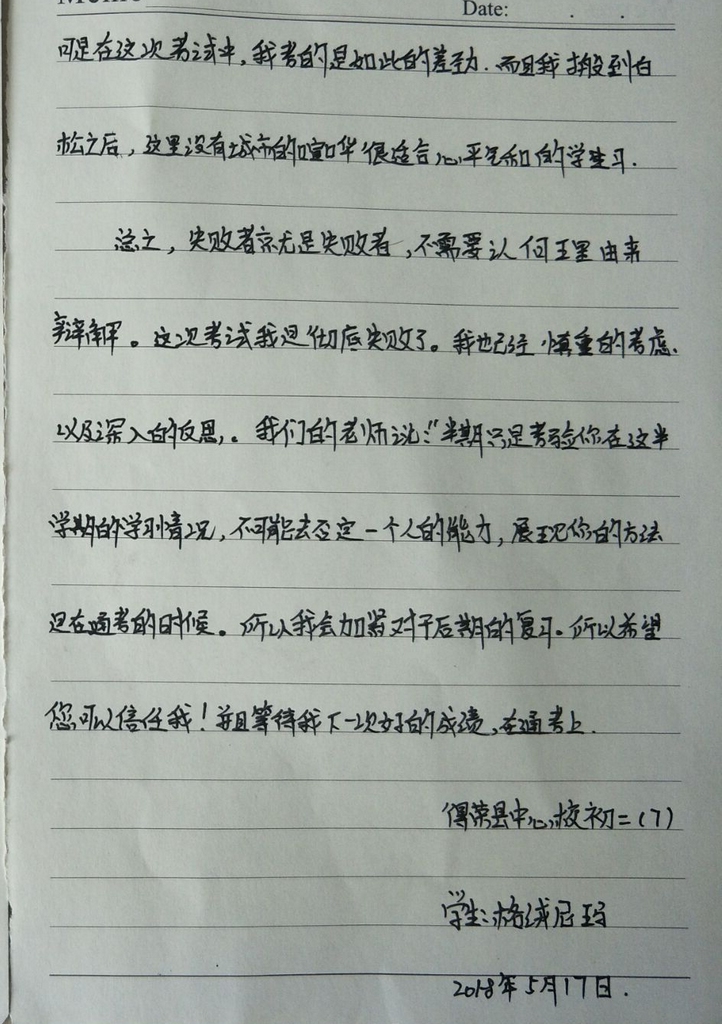 Date: . .
可是在这次考试中，我考的是如此的差劲．而且我搬到白
松之后，这里没有城市的喧哗很适合心平气和的学生习．
总之，失败者京尤是失败者，不需要认何理由来
辩解。这次考试我是彻底失败了。我也已经慎重的考虑、
以及深入的反思,。我们的老师说：“半期只是考验你在这半
学期的学习情况，不可能去否定一个人的能力，展现你的方法
是在通考的时候。所以我会加紧对于后期的复习。所以希望
您可以信任我！并且等待我下一次好的成绩，在通考上．
得荣县中心校初二(7)
学生：格绒尼玛
2018年5月17日．